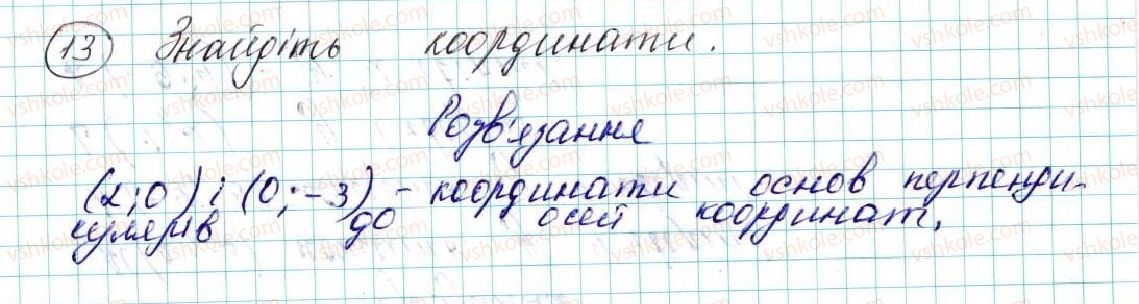 13 Знайдіть координати.
Розв'язання
(2;0) і (0;-3) - координати основ перпенди-
кулярів до осей координат.